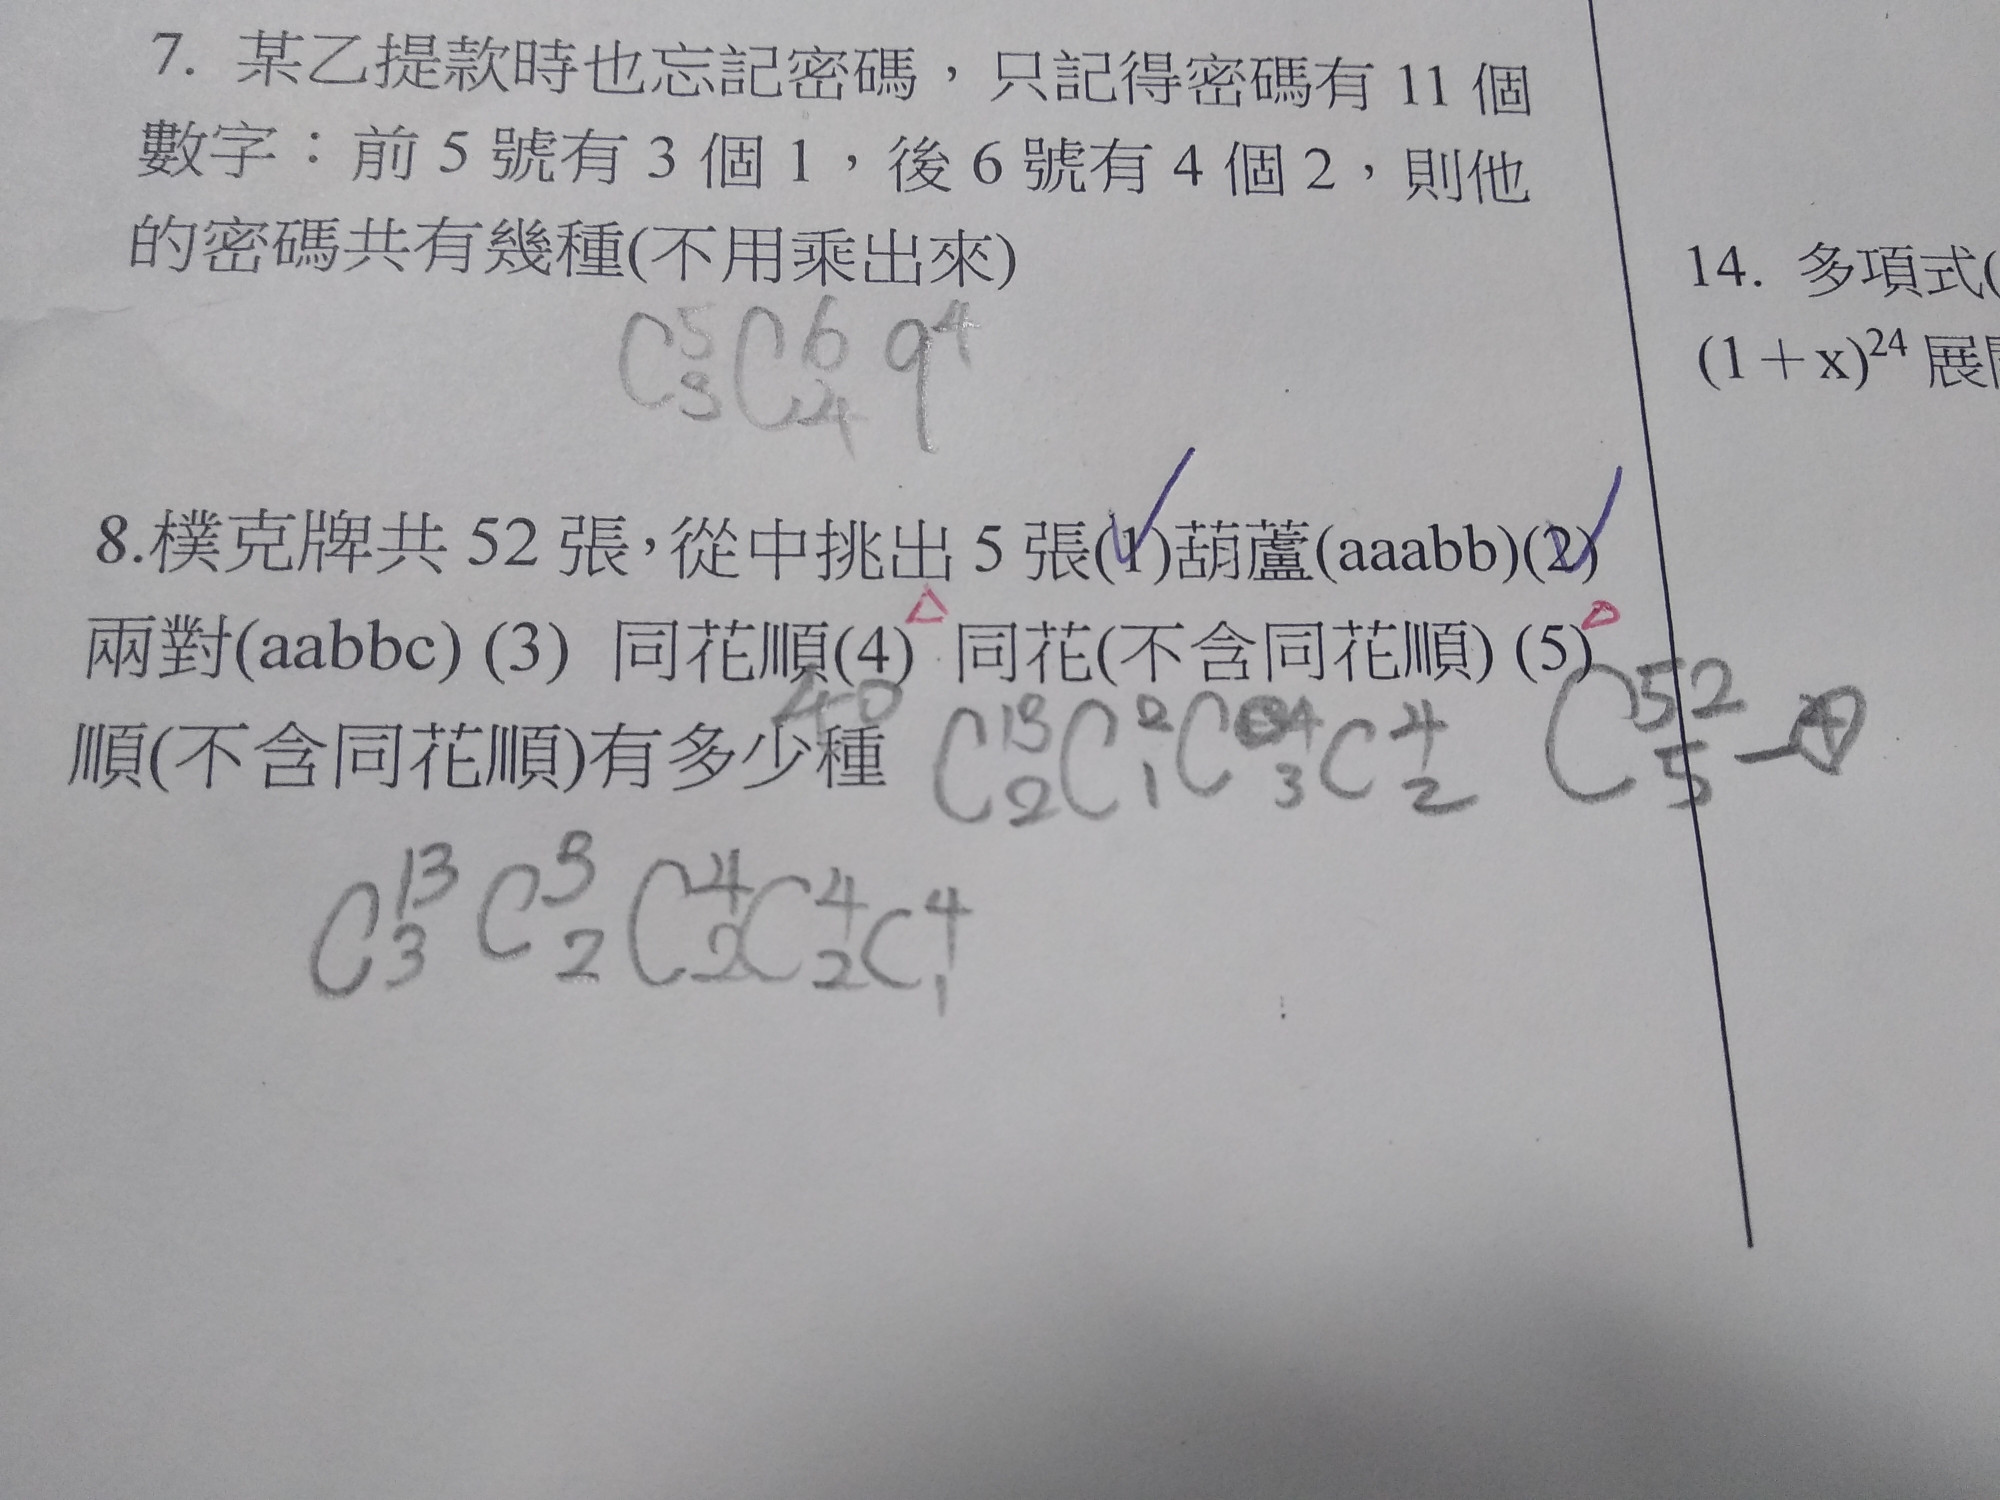 7. 某乙提款時也忘記密碼，只記得密碼有 11 個
數字：前 5 號有 3 個 1，後 6 號有 4 個 2，則他
的密碼共有幾種(不用乘出來)
C⁵₃ C⁶₄ 9⁴
8.樸克牌共 52 張，從中挑出 5 張(1)葫蘆(aaabb)(2)
兩對(aabbc) (3) 同花順(4) 同花(不含同花順) (5)
40
順(不含同花順)有多少種
C¹³₂ C²₁ C⁴₃ C⁴₂
C⁵²₅ -
C¹³₃ C³₂ C⁴₂ C⁴₂ C⁴₁
14. 多項式(
(1＋x)²⁴ 展